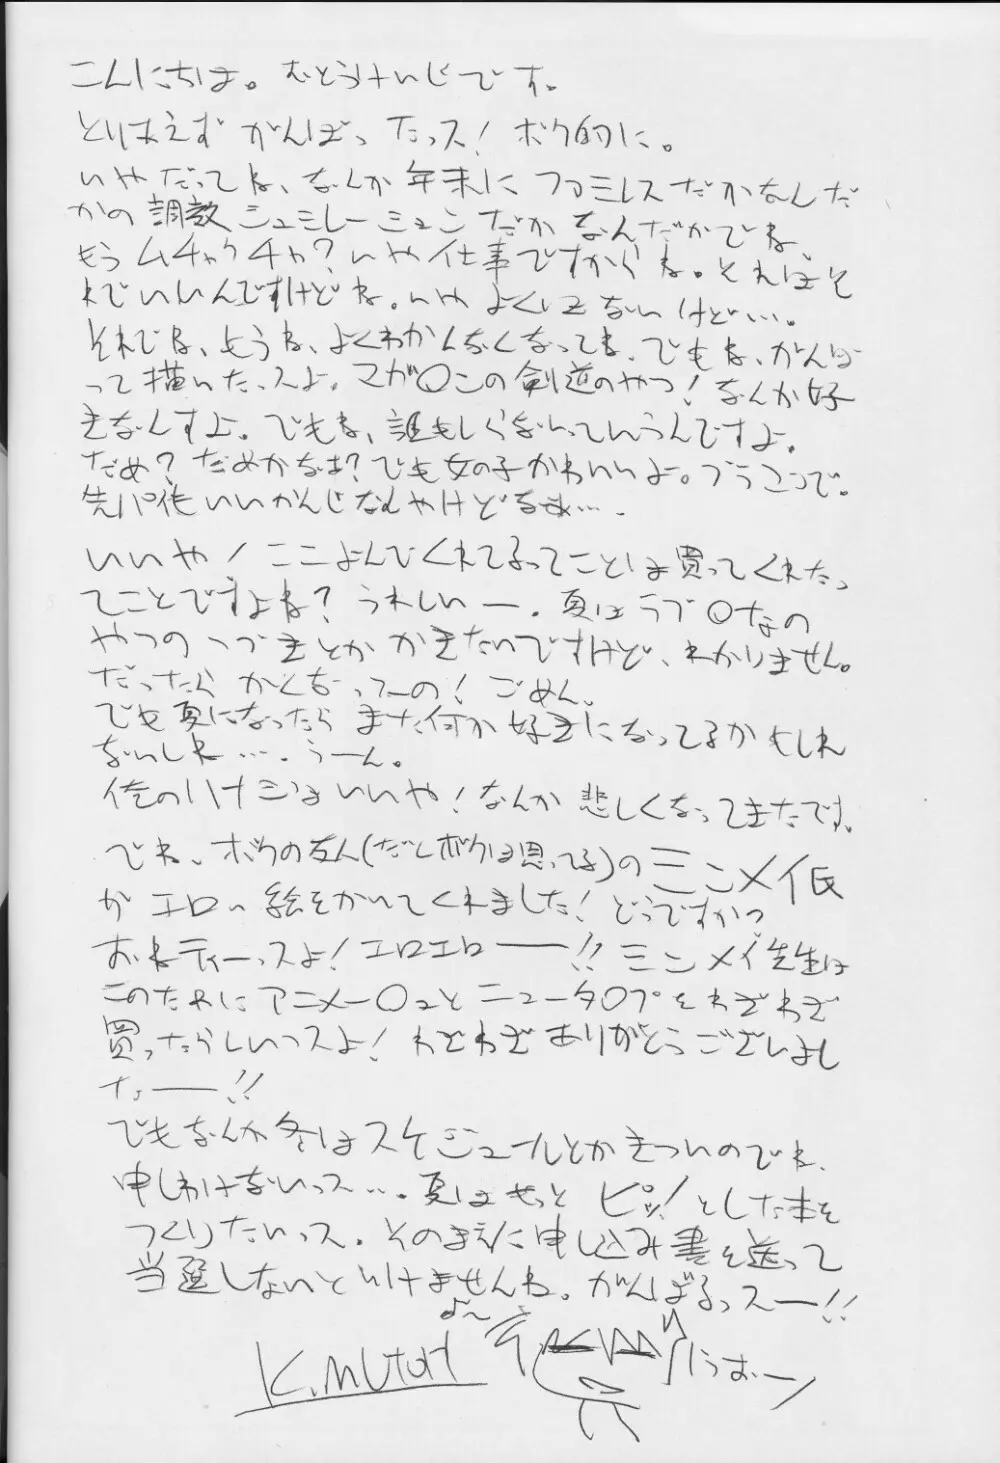 こんにちは。むとうけいじです。
とりあえずがんばったっス！ボク的に。
いやだってね、なんか年末にファミレスだかなんだ
かの調教シュミレーミュンだかなんだかでね、
もうムチャクチャ？いや仕事ですからね。それはそ
れでいいんですけどね。いやよくはないけど…。
それでね、もうね、よくわかんなくなっても、でもね、がんば
って描いたっスよ。マガ〇ンの剣道のやつ！なんか好
きなんすよ。でもね、誰もしらないっていうんですよ。
だめ？だめかなぁ？でも女の子かわいいよ。ブラコンで。
先パイもいいかんじなんやけどなぁ…。
いいや！ここよんでくれてるってことは買ってくれたっ
てことですよね？うれしいー。夏はラブ〇なの
やつのつづきとかかきたいですけど、わかりません。
だったらかくなってーの！ごめん。
でも夏になったらまた何か好きになってるかもしれ
ないしね…。うーん。
俺のハナシはいいや！なんか悲しくなってきたです。
でね、ボクの友人(だとボクは思ってる)のミンメイ氏
がエロい絵をかいてくれました！どうですかっ
おねティーっスよ！エロエローー!!ミンメイ先生は
このためにアニメー〇ュとニュータ〇プをわざわざ
買ったらしいっスよ！わざわざありがとうございまし
たーー!!
でもなんか冬はスケジュールとかきついのでね、
申しわけないっス…。夏はもっとピッ！とした本を
つくりたいっス。そのまえに申し込み書を送って
当選しないといけませんね。がんばるっスー!!
よ〜
K.MUTOH
うおー